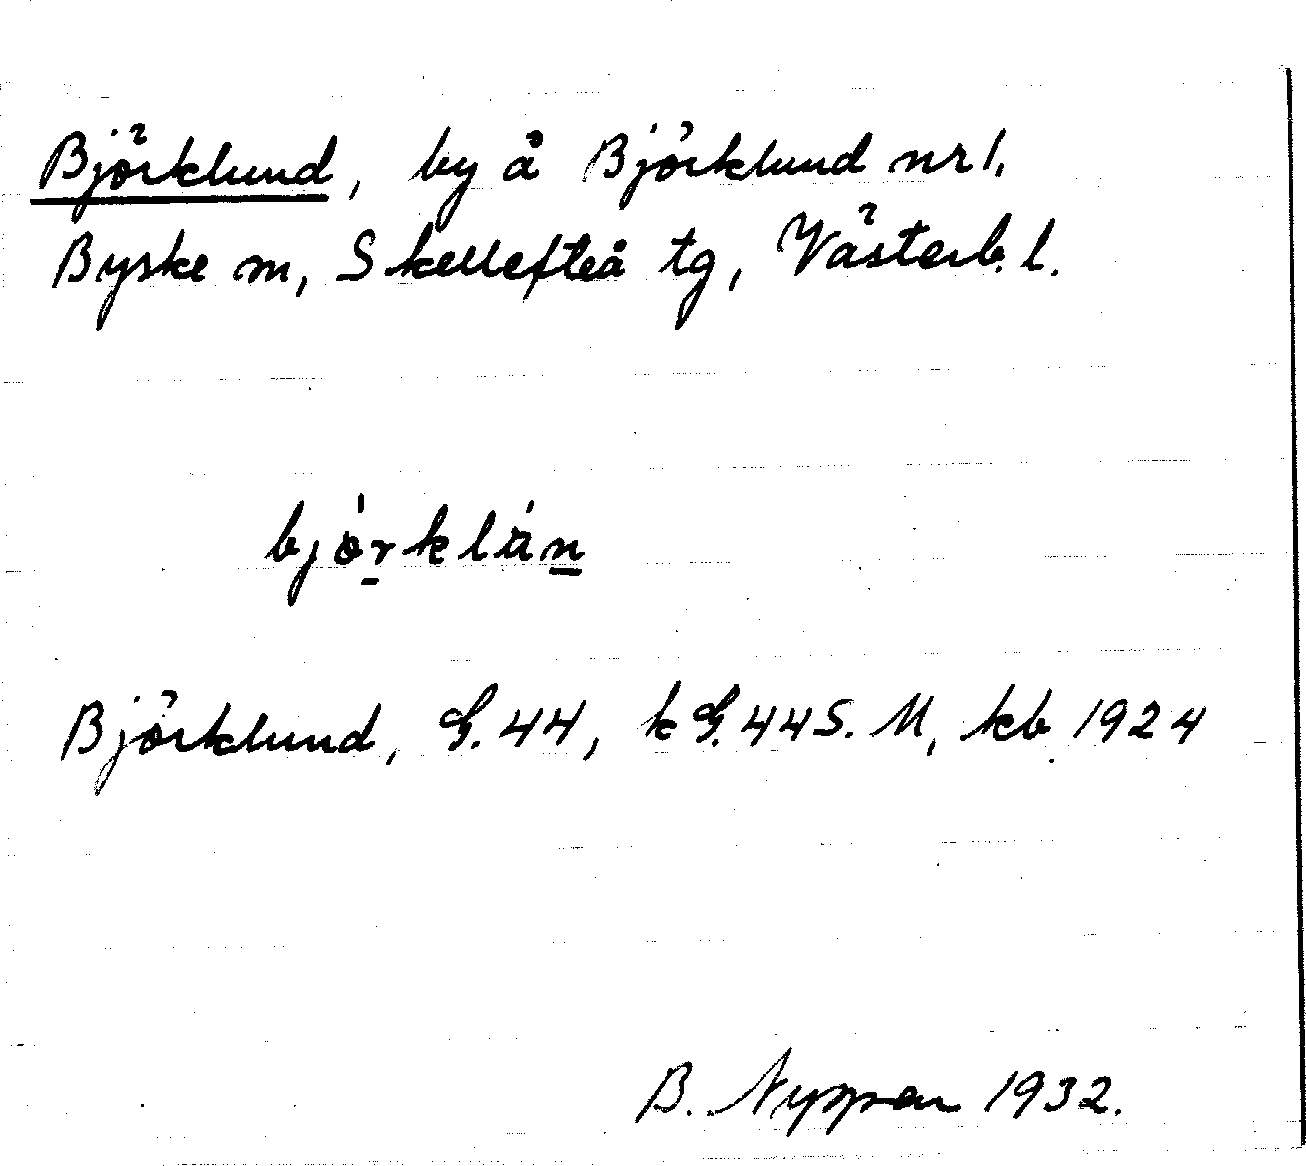 Björklund, by å Björklund nr 1.
Byske m, Skellefteå tg, Västerb. l.
björklán
Björklund, G. 44, k G. 44 S. M, kb 1924
B. 1932.